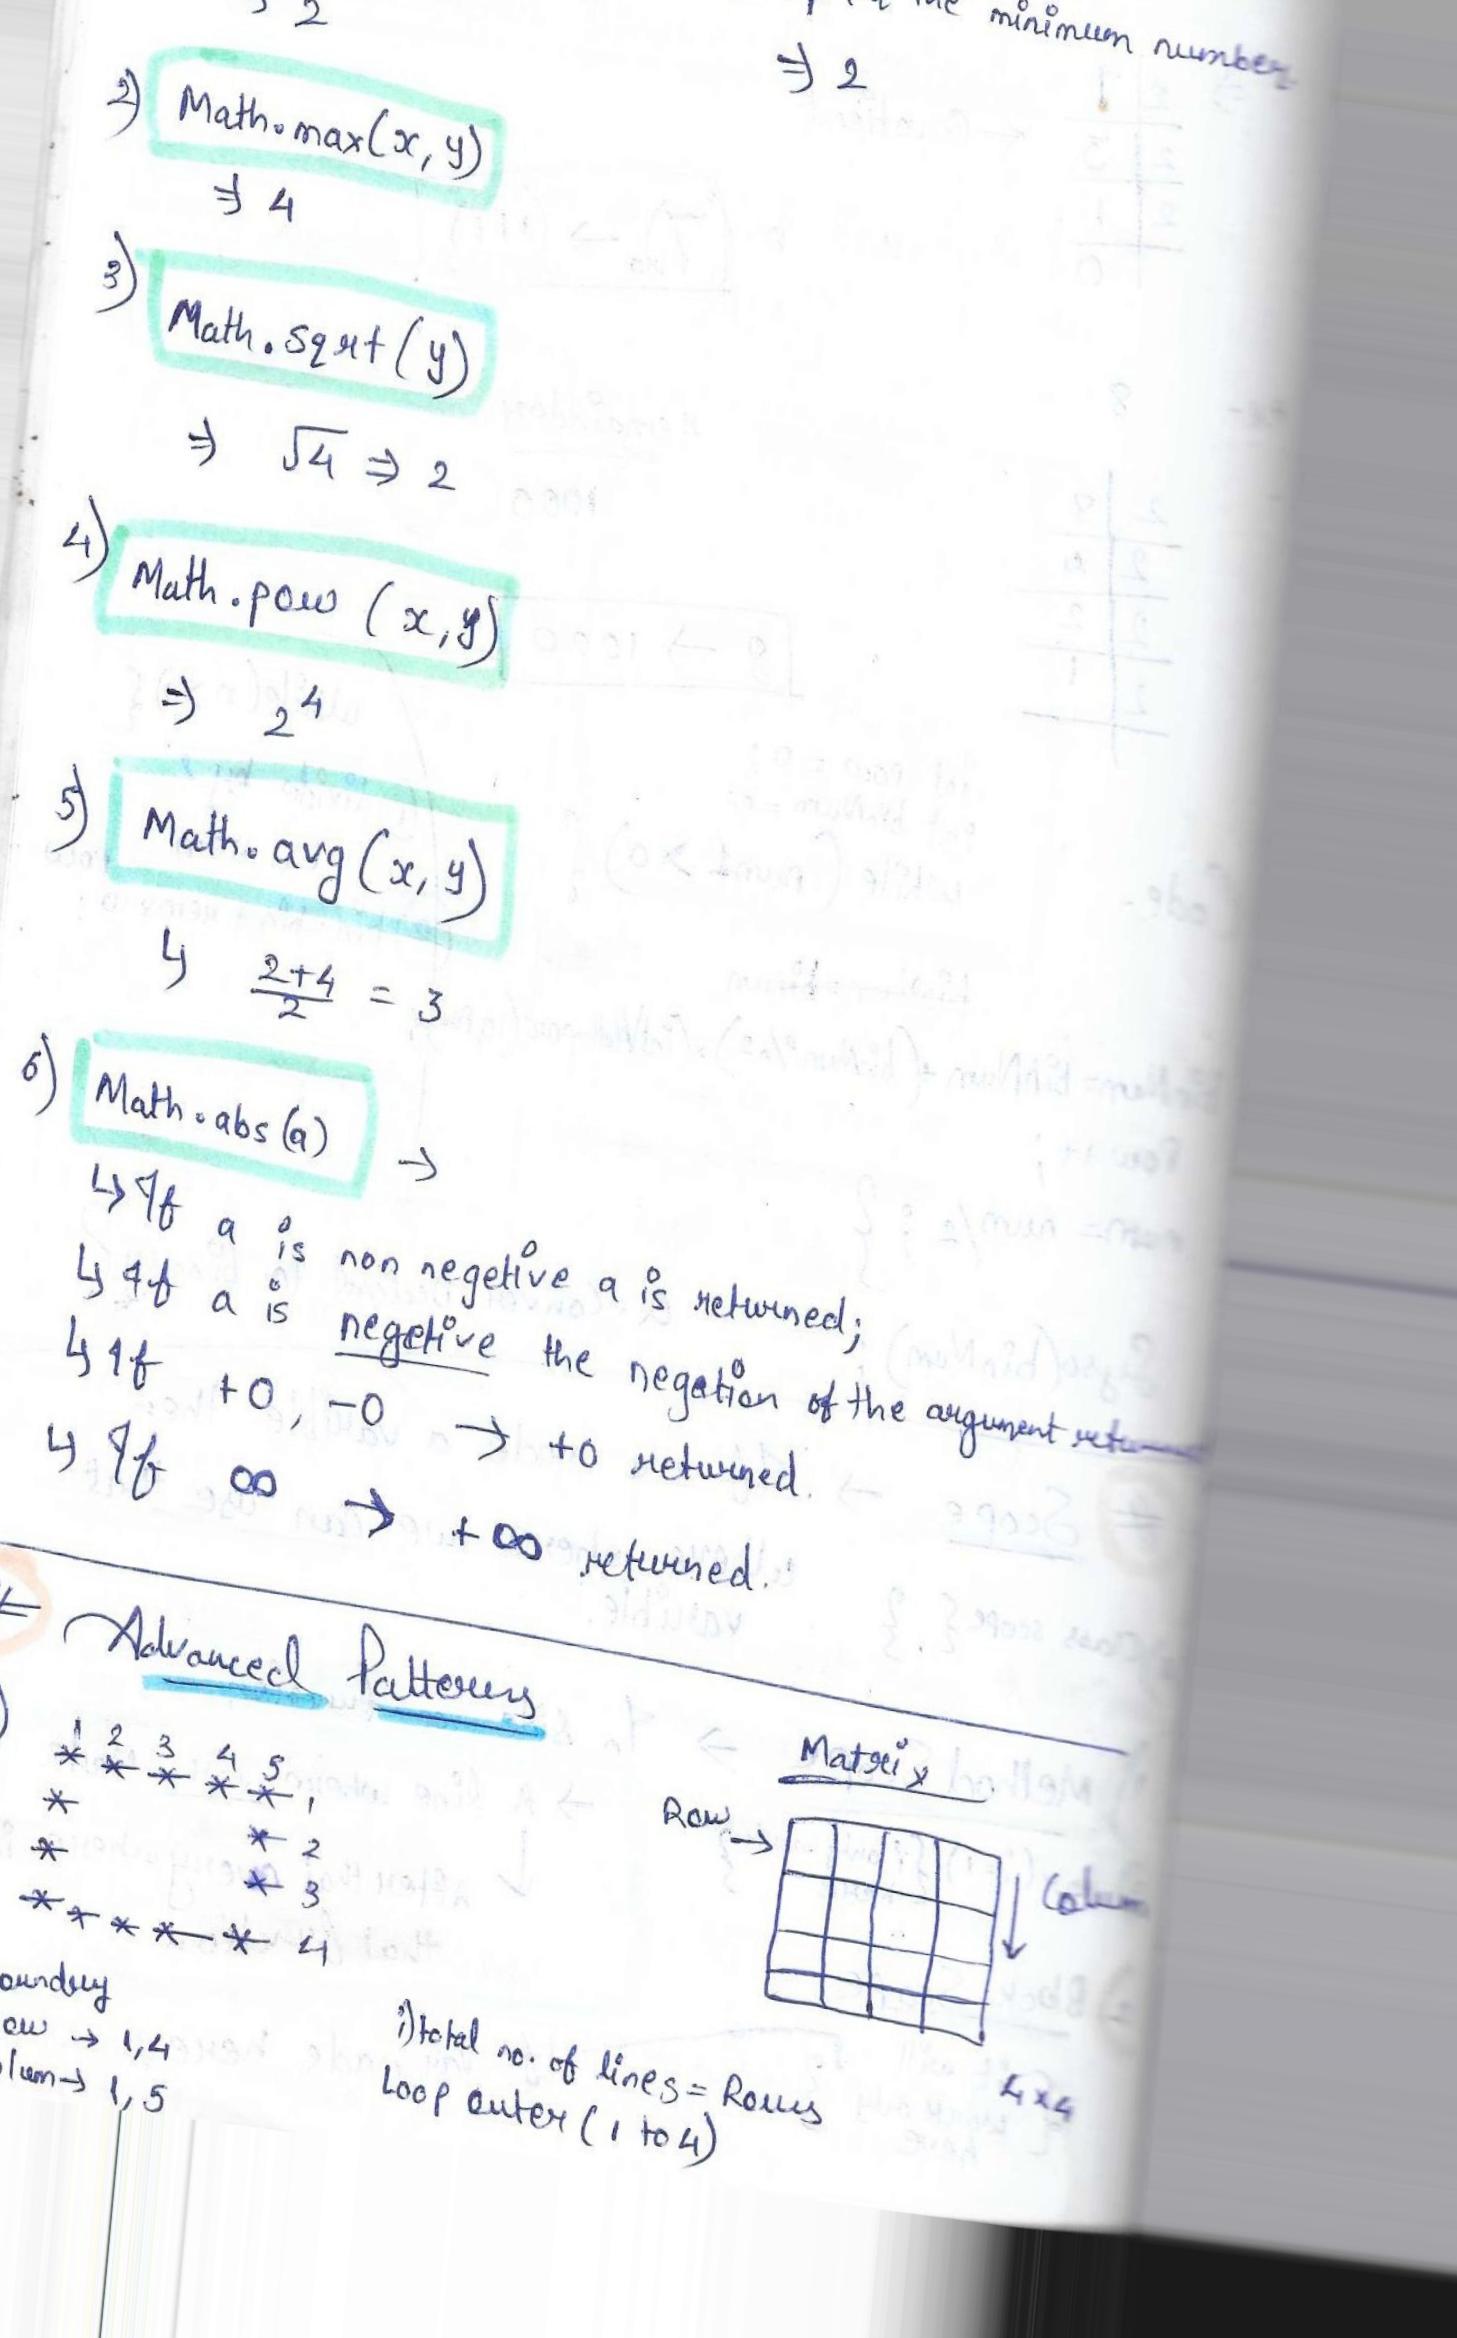 2
the minimum number
⇒ 2
2) Math.max(x, y)
⇒ 4
3) Math.sqrt(y)
⇒ √4 ⇒ 2
4) Math.pow (x, y)
⇒ 2^4
5) Math.avg(x, y)
↳ 2+4/2 = 3
6) Math.abs(a) →
↳ If a is non negetive a is returned;
↳ If a is negetive the negation of the argument
↳ If +0, -0 → +0 returned.
↳ If ∞ → +∞ returned.
Advanced Patterns
1 2 3 4 5
* * * * * 1
* * 2
* * 3
* * * * * 4
Matrix
Row →
Colum
4x4
oundry
ow → 1,4
lum → 1,5
i) total no. of lines = Rows
Loop outer (1 to 4)